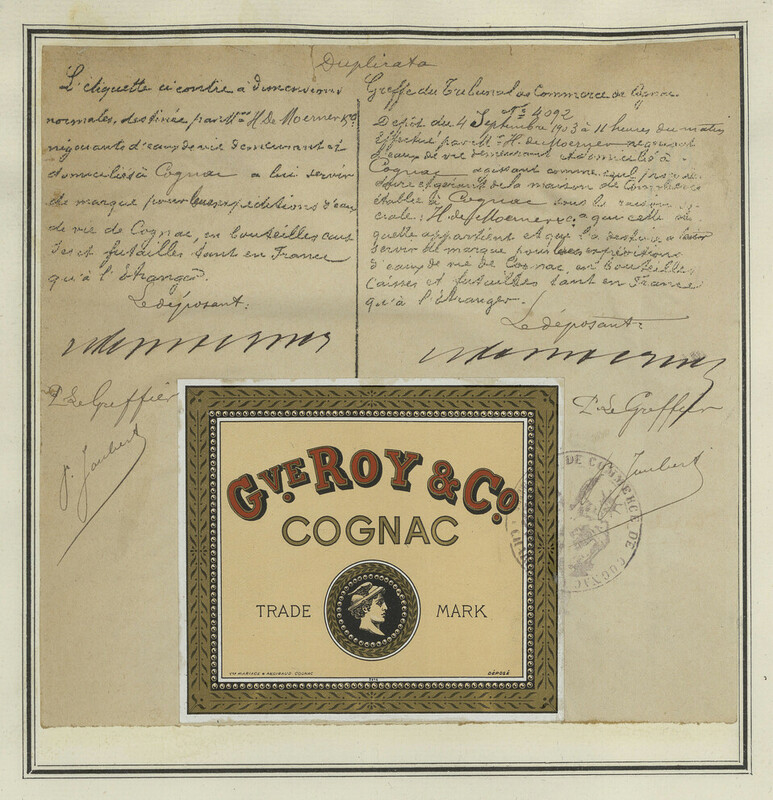 Duplicata
L'étiquette ci contre à dimensions
normales, destinée, par Mr H. de Moerner & Co
négociants d'eaux de vie demeurant et
domiciliés à Cognac a lui servir
de marque pour leurs expéditions d'eaux
de vie de Cognac, en bouteilles cais
ses et futailles tant en France
qu'à l'étranger.
Le déposant:
P. Le Greffier
Joubert
Greffe du Tribunal de Commerce de Cognac
No 4092
Dépôt du 4 Septembre 1903 à 11 heures du matin
Effectué par Mr H. de Moerner négociant
d'eaux de vie demeurant et domicilié à
Cognac agissant comme seul proprié-
taire et gérant de la maison de Commerce
établie à Cognac sous la raison so-
ciale: H. de Moerner & Co, à qui cette éti-
quette appartient et qui l'a destinée à
servir de marque pour expéditions
d'eaux de vie de Cognac, en Bouteilles
Caisses et futailles tant en France
qu'à l'étranger.
Le déposant:
P. Le Greffier
Joubert
DE COMMERCE DE COGNAC
GVE ROY & CO
COGNAC
TRADE MARK
DÉPOSÉ